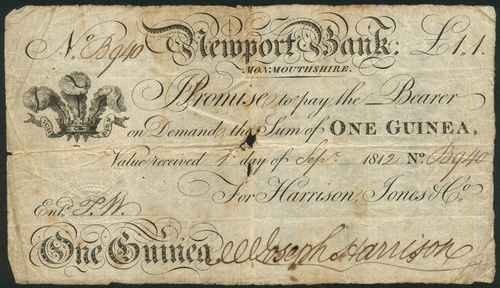 No. B940 Newport Bank: £1.1.
MONMOUTHSHIRE.
I Promise to pay the Bearer
on Demand the Sum of ONE GUINEA,
Value received 1st day of Sepr. 1812 No. B940
For Harrison, Jones & Co.
Entd. T.W.
One Guinea Joseph Harrison
ICH DIEN